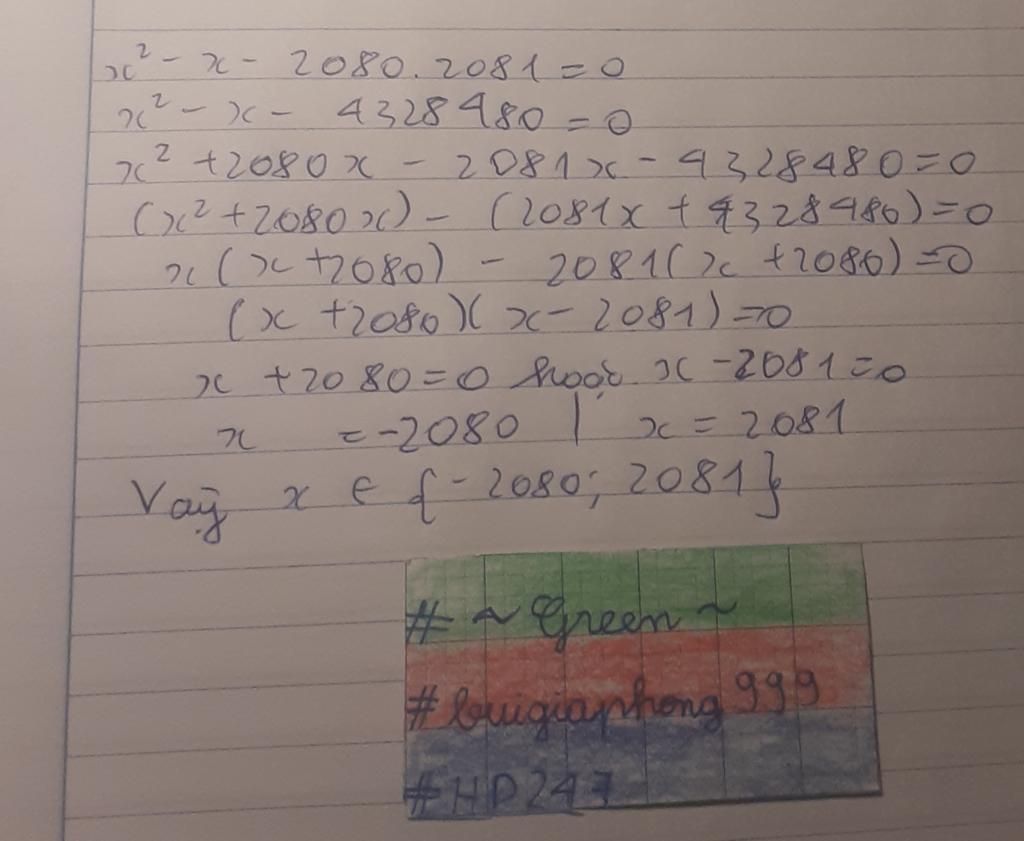 x² - x - 2080.2081 = 0
x² - x - 4328480 = 0
x² + 2080x - 2081x - 4328480 = 0
(x² + 2080x) - (2081x + 4328480) = 0
x(x + 2080) - 2081(x + 2080) = 0
(x + 2080)(x - 2081) = 0
x + 2080 = 0 hoặc x - 2081 = 0
x = -2080 | x = 2081
Vậy x ∈ {-2080; 2081}
# ~ Green ~
# buigiaphong999
#HD247